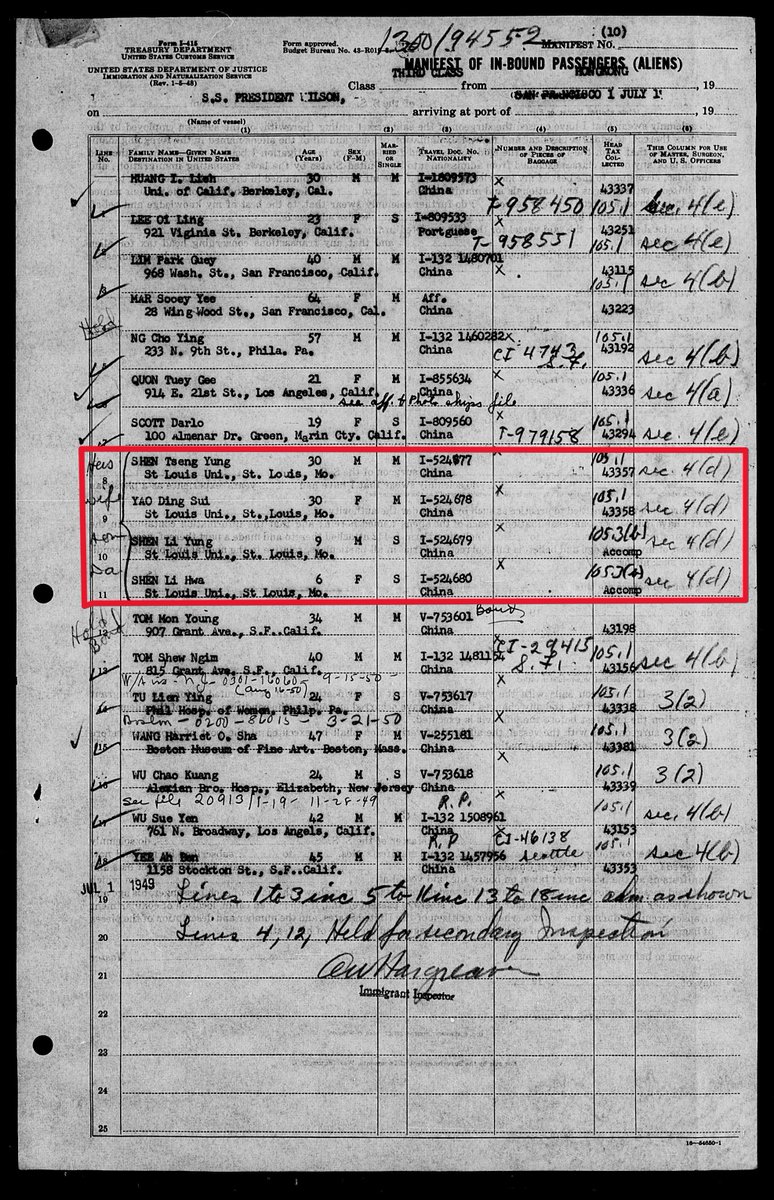 1300/94552
(10)
Form I-415
TREASURY DEPARTMENT
UNITED STATES CUSTOMS SERVICE
Form approved.
Budget Bureau No. 43-R015
MANIFEST No.
UNITED STATES DEPARTMENT OF JUSTICE
IMMIGRATION AND NATURALIZATION SERVICE
(Rev. 1-5-48)
MANIFEST OF IN-BOUND PASSENGERS (ALIENS)
Class THIRD CLASS from HONGKONG, 19
on S.S. PRESIDENT WILSON, arriving at port of SAN FRANCISCO 1 JULY 1, 19
(Name of vessel)
(1) (2) (3) (4) (5) (6)
LINE No. FAMILY NAME—GIVEN NAME DESTINATION IN UNITED STATES AGE (Years) SEX (F-M) MARRIED OR SINGLE TRAVEL DOC. NO. NATIONALITY NUMBER AND DESCRIPTION OF PIECES OF BAGGAGE HEAD TAX COLLECTED THIS COLUMN FOR USE OF MASTER, SURGEON, AND U. S. OFFICERS
HUANG I. Lieh 30 M M I-1809573 X
Uni. of Calif. Berkeley, Cal. China 43337
T-958450 105.1 sec. 4(e)
LEE Oi Ling 23 F S I-809533 X
921 Viginia St. Berkeley, Calif. Portguese 43251
T-958551 105.1 sec 4(e)
LIM Park Guey 40 M M I-132 1480701 X
968 Wash. St., San Francisco, Calif. China 43115
105.1 sec 4(b)
MAR Sooey Yee 64 F M Aff.
28 Wing Wood St., San Francisco, Cal. China 43223
Held
NG Cho Ying 57 M M I-132 1460282 X 105.1
233 N. 9th St., Phila. Pa. China CI 4743 S.F. 43192 sec 4(b)
QUON Tuey Gee 21 F M I-855634 X 105.1
914 E. 21st St., Los Angeles, Calif. China 43336 sec 4(a)
see aff. & Photo ships file
SCOTT Darlo 19 F S I-809560 X 105.1
100 Almenar Dr. Green, Marin Cty. Calif. China T-979158 43294 sec. 4(e)
SHEN Tseng Yung 30 M M I-524677 X 105.1
8 St Louis Uni., St. Louis, Mo. China 43357 sec 4(d)
wife
YAO Ding Sui 30 F M I-524678 X 105.1
9 St Louis Uni., St.,Louis, Mo. China 43358 sec 4(d)
son
SHEN Li Yung 9 M S I-524679 X 105.3(b)
10 St Louis Uni., St. Louis, Mo. China Accomp sec 4(d)
Da
SHEN Li Hwa 6 F S I-524680 X 105.3(b)
11 St Louis Uni., St Louis, Mo. China Accomp sec 4(d)
Held
TOM Mon Young 34 M M V-753601
907 Grant Ave., S.F..Calif. China 43198
TOM Shew Ngim 40 M M I-132 1481154 CI-29415 S.F. 105.1
815 Grant Ave. S.F., Calif. China 43156 sec 4(b)
9-15-50
(Aug 16-50)
TU Lien Ying 24 F S V-753617 X 105.1
Phil Hosp. of Women. Philp. Pa. China 43338 3(2)
Boston - 0200-86015 - 3-21-50
WANG Harriet O. Sha 47 F M V-255181 X 105.1
15 Boston Museum of Fine Art. Boston, Mass. China 43381 3(2)
WU Chao Kuang 24 M S V-753618 X 105.1
16 Alexian Bro. Hosp., Elizabeth, New Jersey China 43339 3(2)
see file 20913/1-19- 11-28-49 R.P.
WU Sue Yen 42 M M I-132 1508961 X 105.1
761 N. Broadway, Los Angels, Calif. China 43153 sec. 4(b)
R.P CI-46138 Seattle 105.1
18 YEE Ah Ben 45 M M I-132 1457956
1158 Stockton St., S.F..Calif. China 43353 sec 4(b)
JUL 1 1949
19 Lines 1 to 3 inc 5 to 11 inc 13 to 18 inc adm as shown
20 Lines 4, 12, Held for secondary Inspection
21
Immigrant Inspector
22
23
24
25
16—54650-1